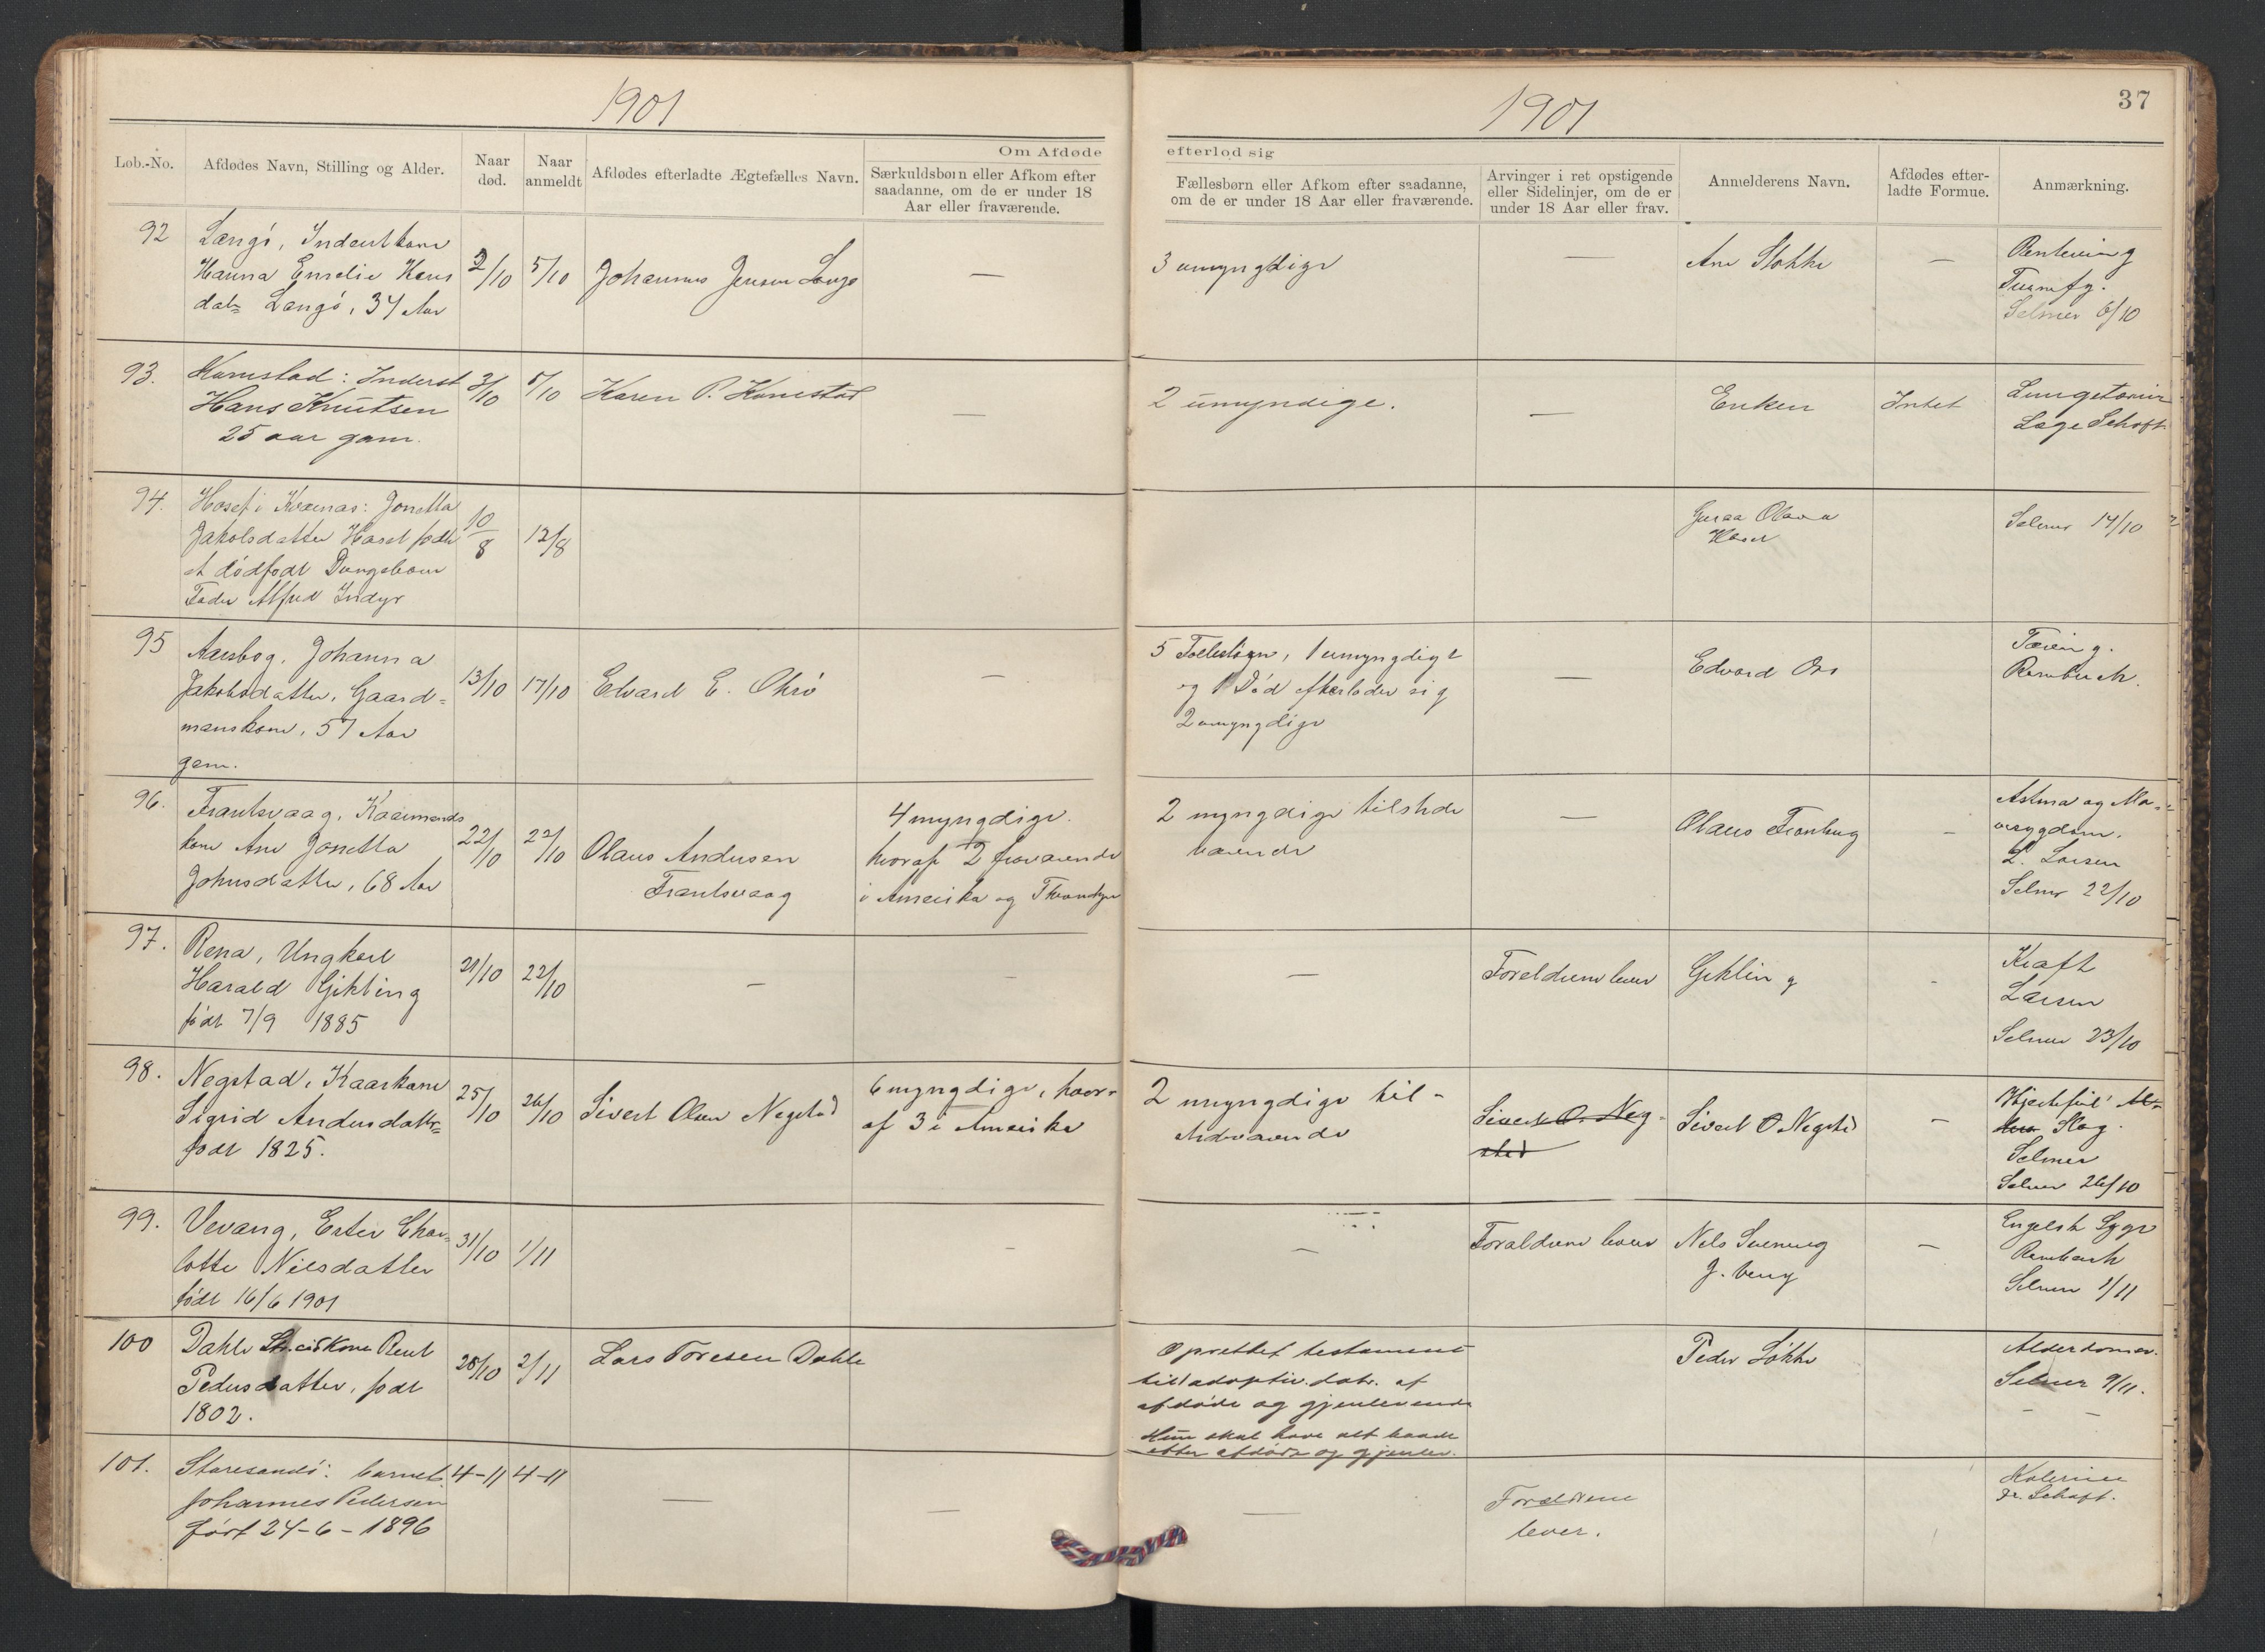 1901
1901
37
Løb.-No.
Afdødes Navn, Stilling og Alder.
Naar død.
Naar anmeldt
Afdødes efterladte Ægtefælles Navn.
Om Afdøde
efterlod sig
Særkuldsbørn eller Afkom efter
saadanne, om de er under 18
Aar eller fraværende.
Fællesbørn eller Afkom efter saadanne,
om de er under 18 Aar eller fraværende.
Arvinger i ret opstigende
eller Sidelinjer, om de er
under 18 Aar eller frav.
Anmelderens Navn.
Afdødes efter-
ladte Formue.
Anmærkning.
92
Langö,
Hanna Emelie Hans
datr Langö, 34 Aar
2/10
5/10
Johannes Jensen Langö
—
3 umyngdige
—
Stokke
—
Selmer 6/10
93.
Inderst
Hans Knutsen
25 aar gam.
3/10
5/10
Karen P.
—
2 umyndige.
—
Enken
Intet
94.
Hoset i Kvernes: Jonetta
Jakobsdatter Hoset fødte
et dødfødt Drengebarn
Fader Alfred Indyr
10/8
12/8
Hoset
Selmer 14/10
95
Johanna
Jakobsdatter, Gaard=
manskone, 57 Aar
gam.
13/10
17/10
Edvard E.
—
5 1 umyngdigt
og 1 Død efterlader sig
2 umyngdige
—
Edvard
Tæring.
96.
Frantsvaag,
kone Ane Jonetta
Johnsdatter, 68 Aar
22/10
22/10
Olaus Andersen
Frantsvaag
4 myngdige.
hvoraf 2 fraværende
i Amerika og
2 myngdige tilstede
værende
—
Olaus
–
Astma og Ma-
vesygdom.
L. Larsen
Selmer 22/10
97.
Rena, Ungkarl
Harald Gikling
født 7/9 1885
21/10
22/10
—
–
—
Foreldrene lever
Gikling
-
Kræft
Larsen
Selmer 23/10
98.
Negstad, Kaarkone
Sigrid Andersdatter
født 1825.
25/10
26/10
Sivert Olsen Negstad
6 myngdige, hvor-
af 3 i Amerika
2 myngdige til-
stedeværende
Sivert O. Neg-
stad
Sivert O Negstad
–
Slag.
Selmer
Selmer 26/10
99.
Vevang, Ester Char=
lotte Nilsdatter
født 16/6 1901
31/10
1/11
–
—
Foreldrene lever
Nels
–
Engelsk Syge
Selmer 1/11
100
Dahle
Pedersdatter, født
1802.
28/10
2/11
Lars Toresen Dahle
Oprettet testament
til adoptiv.datr. af
afdøde og gjenlevende
Hun skal have alt baade
etter afdøde og gjenlev.
Peder Løkke
Alderdom.
Selmer 9/11.
101.
barnet
Johannes Pedersen
født 24-6-1896
4-11
4-11
—
—
—
Foreldrene
lever.